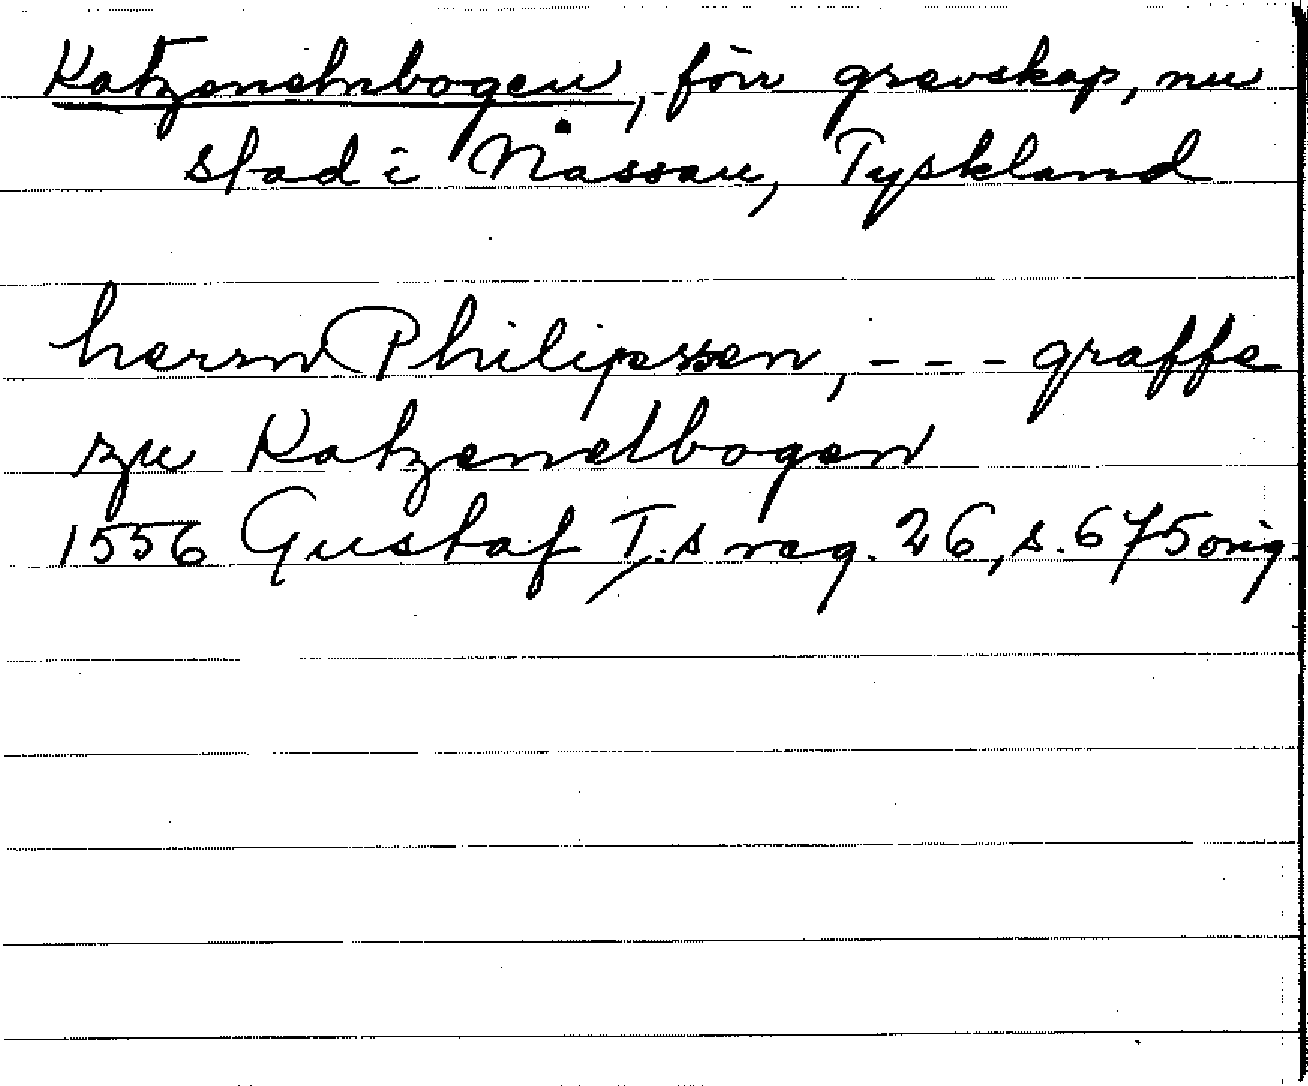 Katzenelnbogen, förr grevskap, nu
stad i Nassau, Tyskland
herrn Philipssen, - - - graffe
zu Katzenelbogen
1556 Gustaf I:s reg. 26, s. 675 orig.